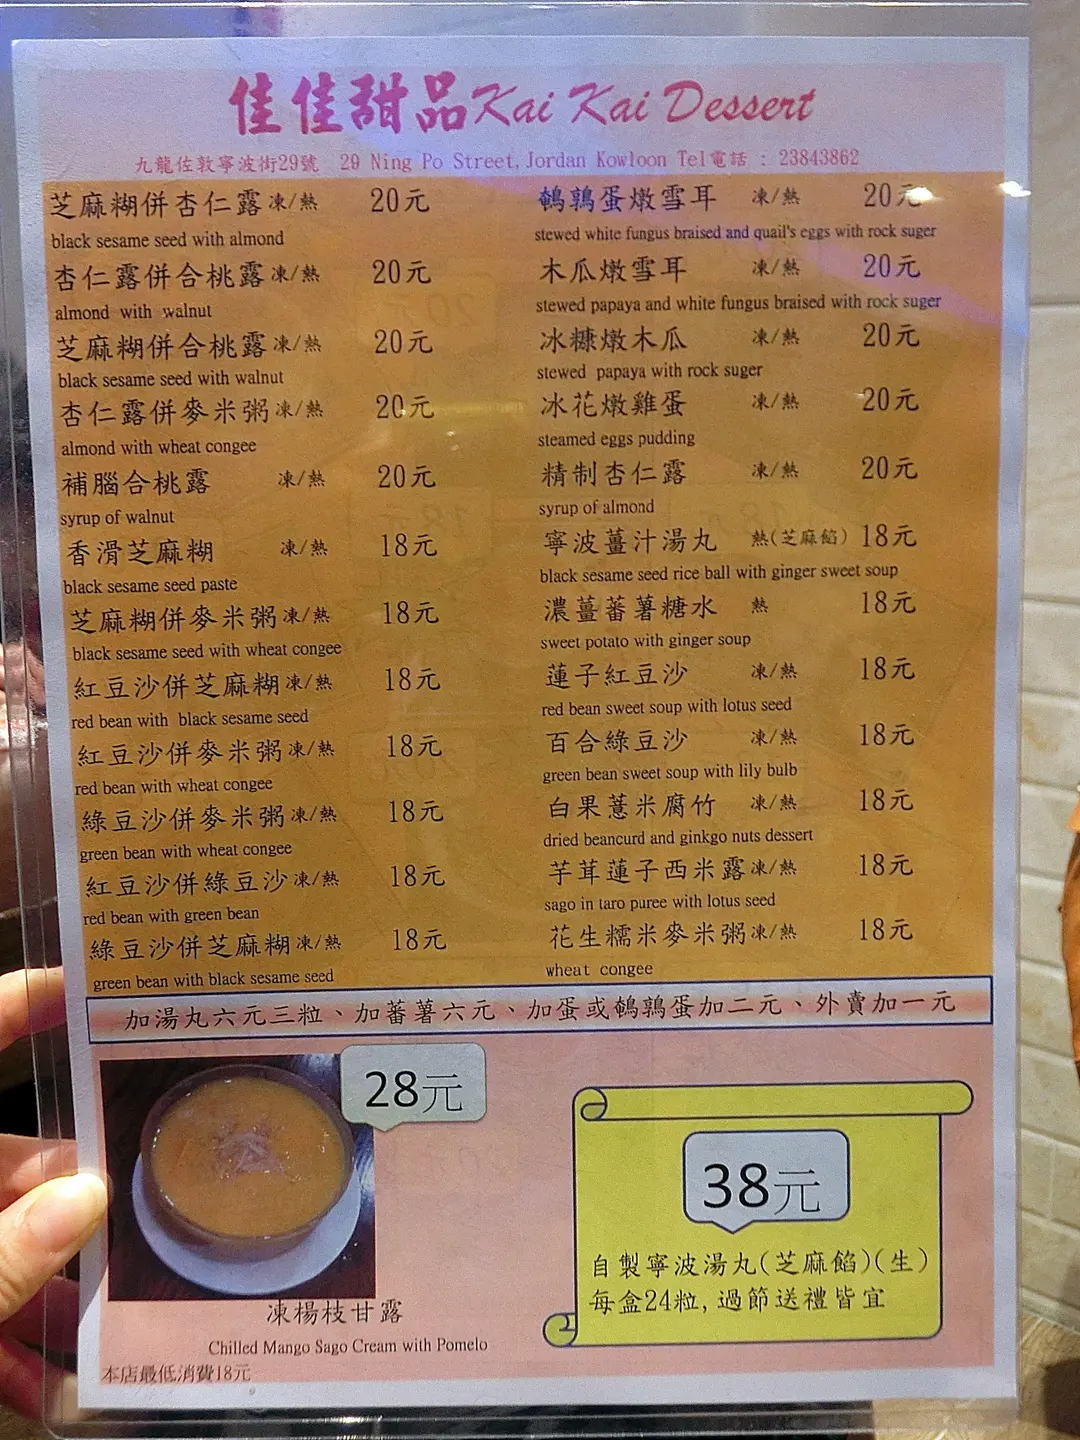 佳佳甜品Kai Kai Dessert
九龍佐敦寧波街29號 29 Ning Po Street,Jordan Kowloon Tel電話 : 23843862
芝麻糊併杏仁露 凍/熱 20元
black sesame seed with almond
杏仁露併合桃露 凍/熱 20元
almond with walnut
芝麻糊併合桃露 凍/熱 20元
black sesame seed with walnut
杏仁露併麥米粥 凍/熱 20元
almond with wheat congee
補腦合桃露 凍/熱 20元
syrup of walnut
香滑芝麻糊 凍/熱 18元
black sesame seed paste
芝麻糊併麥米粥 凍/熱 18元
black sesame seed with wheat congee
紅豆沙併芝麻糊 凍/熱 18元
red bean with black sesame seed
紅豆沙併麥米粥 凍/熱 18元
red bean with wheat congee
綠豆沙併麥米粥 凍/熱 18元
green bean with wheat congee
紅豆沙併綠豆沙 凍/熱 18元
red bean with green bean
綠豆沙併芝麻糊 凍/熱 18元
green bean with black sesame seed
鵪鶉蛋燉雪耳 凍/熱 20元
stewed white fungus braised and quail's eggs with rock suger
木瓜燉雪耳 凍/熱 20元
stewed papaya and white fungus braised with rock suger
冰糠燉木瓜 凍/熱 20元
stewed papaya with rock suger
冰花燉雞蛋 凍/熱 20元
steamed eggs pudding
精制杏仁露 凍/熱 20元
syrup of almond
寧波薑汁湯丸 熱(芝麻餡) 18元
black sesame seed rice ball with ginger sweet soup
濃薑蕃薯糖水 熱 18元
sweet potato with ginger soup
蓮子紅豆沙 凍/熱 18元
red bean sweet soup with lotus seed
百合綠豆沙 凍/熱 18元
green bean sweet soup with lily bulb
白果薏米腐竹 凍/熱 18元
dried beancurd and ginkgo nuts dessert
芋茸蓮子西米露 凍/熱 18元
sago in taro puree with lotus seed
花生糯米麥米粥 凍/熱 18元
wheat congee
加湯丸六元三粒、加蕃薯六元、加蛋或鵪鶉蛋加二元、外賣加一元
28元
凍楊枝甘露
Chilled Mango Sago Cream with Pomelo
本店最低消費18元
38元
自製寧波湯丸(芝麻餡)(生)
每盒24粒,過節送禮皆宜